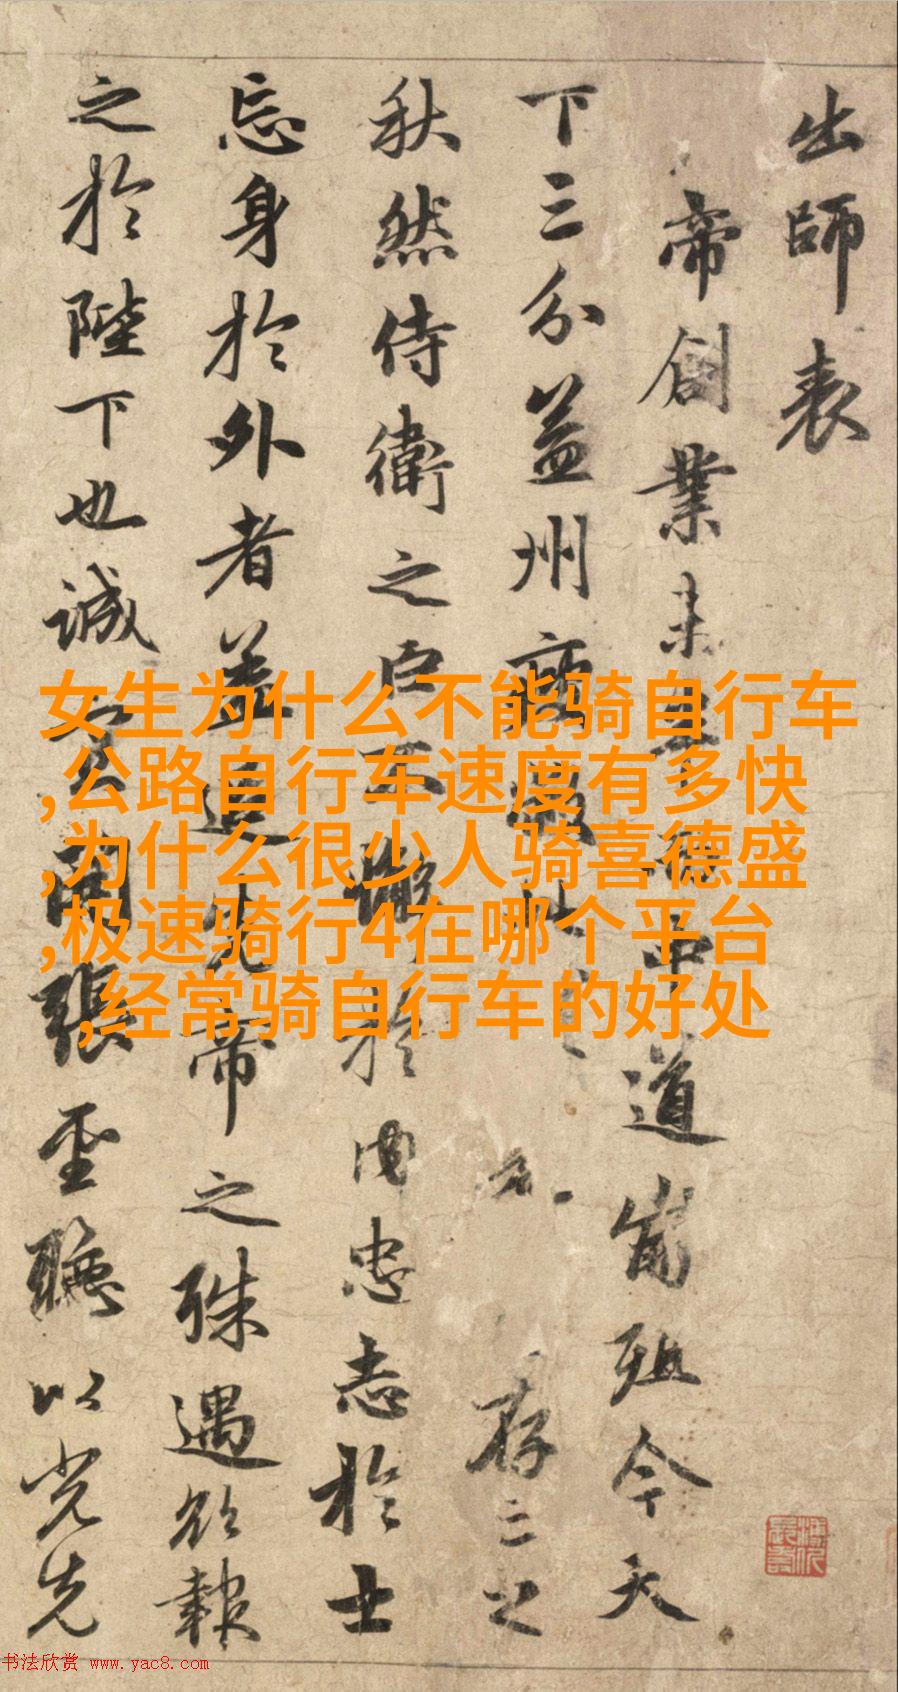 出師表
帝創業未中道崩殂今天
下三分益州疲敝存之
秋然侍衛之臣不懈於内忠志於士
忘身於外者蓋追先帝之殊遇欲報
之於陛下也誠開張聖聽以光先
女生为什么不能骑自行车
,公路自行车速度有多快
,为什么很少人骑喜德盛
,极速骑行4在哪个平台
,经常骑自行车的好处
书法欣赏 www.yac8.com